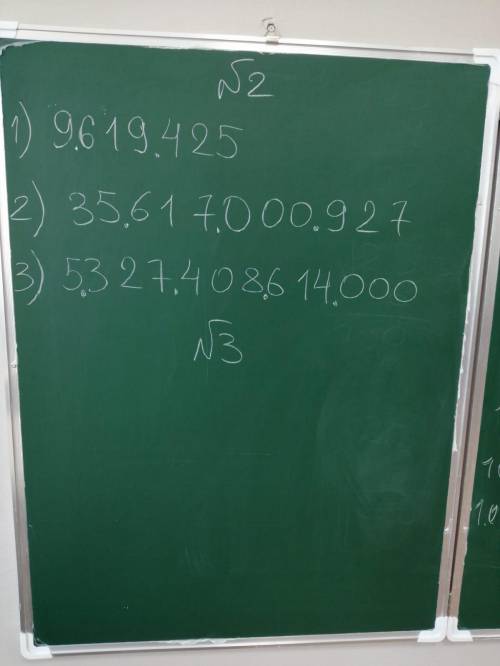 №2
1) 9.619.425
2) 35.617.000.927
3) 5.327.408.614.000
№3